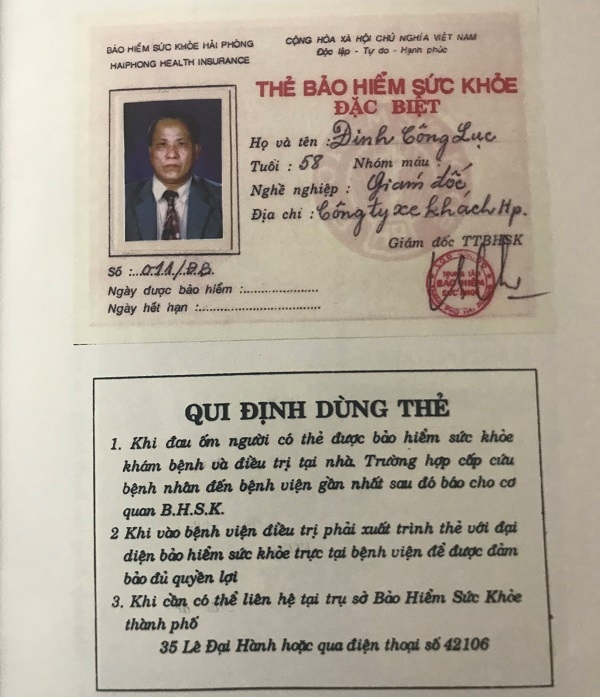 BẢO HIỂM SỨC KHỎE HẢI PHÒNG
HAIPHONG HEALTH INSURANCE
CỘNG HÒA XÃ HỘI CHỦ NGHĨA VIỆT NAM
Độc lập - Tự do - Hạnh phúc
THẺ BẢO HIỂM SỨC KHỎE
ĐẶC BIỆT
Họ và tên : Đinh Công Lục
Tuổi : 58 Nhóm máu :
Nghề nghiệp : Giám đốc
Địa chỉ : Công ty xe khách Hp.
Giám đốc TTBHSK
BẢO HIỂM
Số : 011/ĐB.
Ngày được bảo hiểm :
Ngày hết hạn :
QUI ĐỊNH DÙNG THẺ
1. Khi đau ốm người có thẻ được bảo hiểm sức khỏe
khám bệnh và điều trị tại nhà. Trường hợp cấp cứu
bệnh nhân đến bệnh viện gần nhất sau đó báo cho cơ
quan B.H.S.K.
2 Khi vào bệnh viện điều trị phải xuất trình thẻ với đại
diện bảo hiểm sức khỏe trực tại bệnh viện để được đảm
bảo đủ quyền lợi
3. Khi cần có thể liên hệ tại trụ sở Bảo Hiểm Sức Khỏe
thành phố
35 Lê Đại Hành hoặc qua điện thoại số 42106